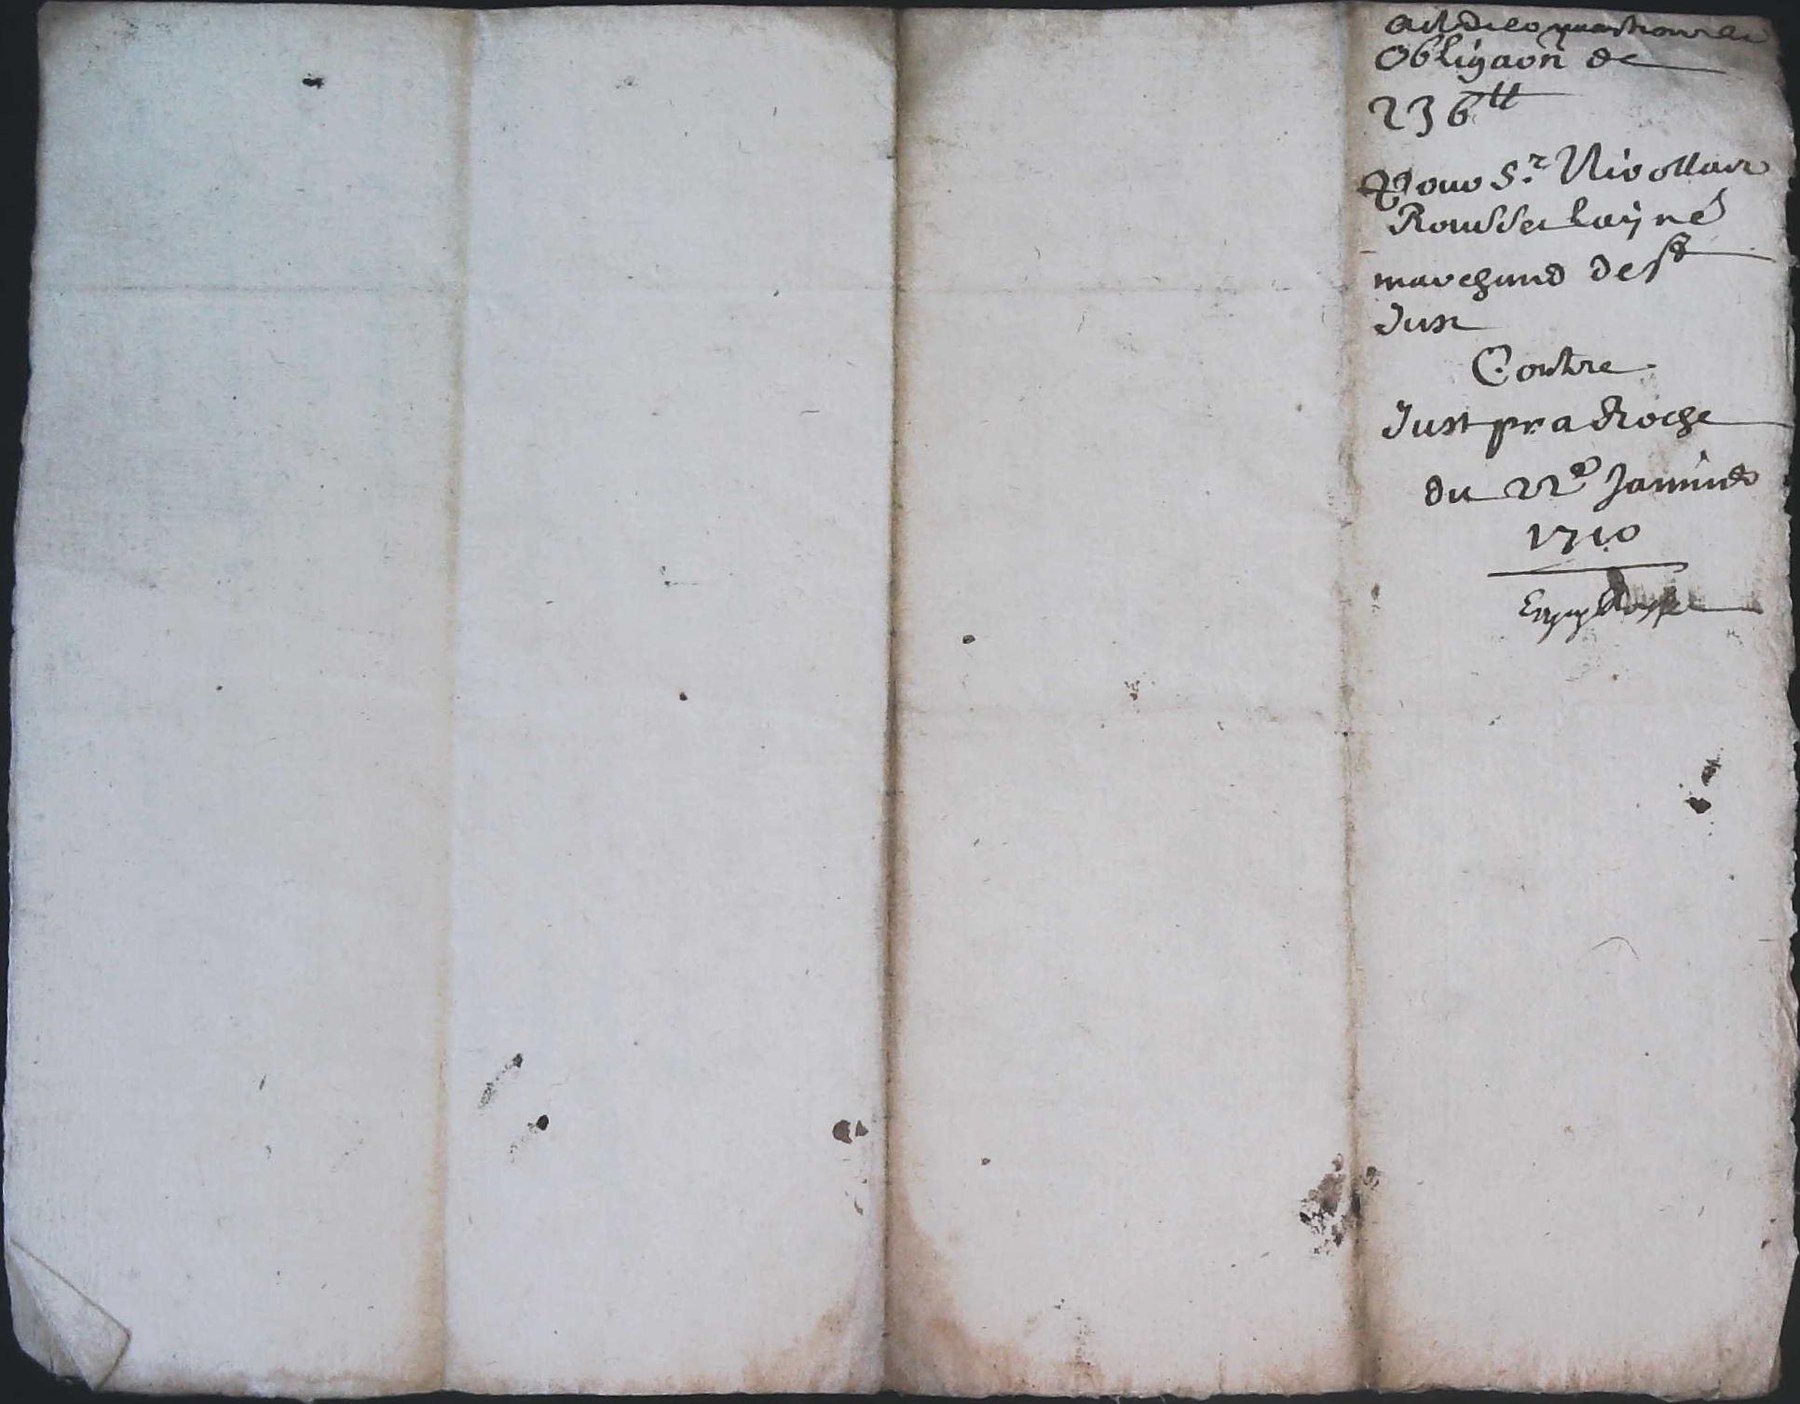 Obligaoñ de
236ᵗᵗ
Pour Sʳ Nicollas
Rousset layné
marchand de Sᵗ
Just
Contre
Just pra Roche
du 22ᵉ Janvier
1710